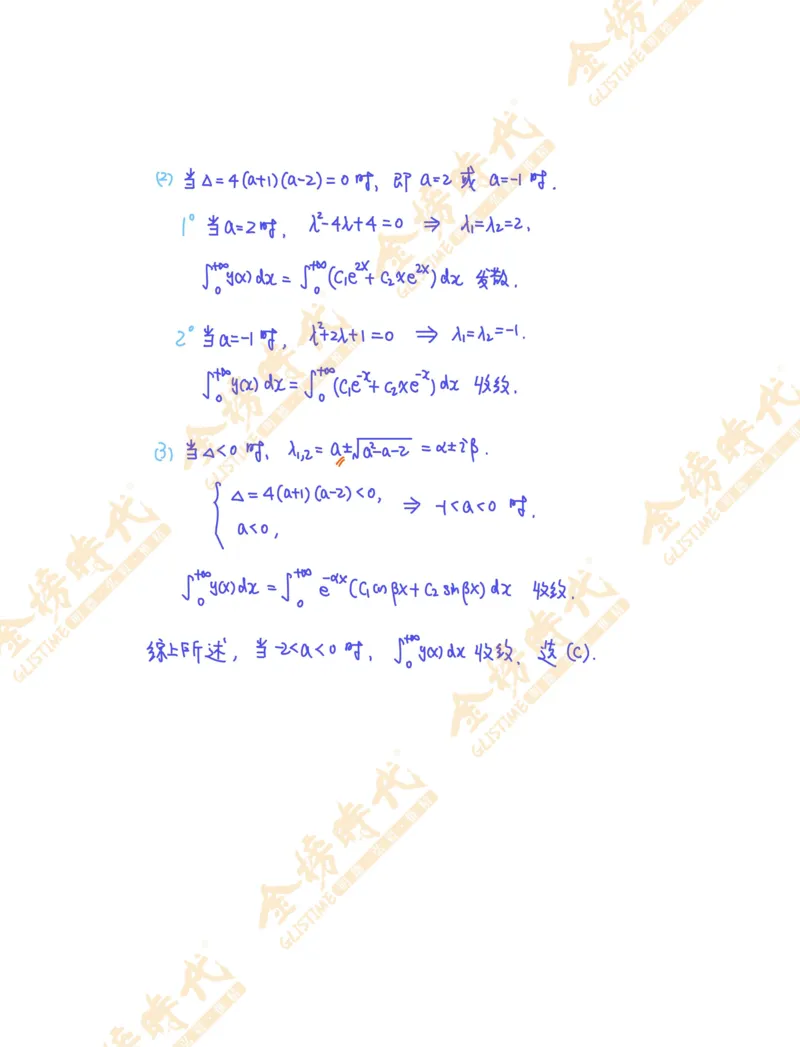 (2) 当Δ=4(a+1)(a-2)=0时, 即 a=2 或 a=-1时.
1° 当a=2时, λ²-4λ+4=0 ⇒ λ₁=λ₂=2,
∫₀^{+∞} y(x)dx = ∫₀^{+∞} (C₁e^{2x}+C₂xe^{2x})dx 发散.
2° 当a=-1时, λ²+2λ+1=0 ⇒ λ₁=λ₂=-1.
∫₀^{+∞} y(x)dx = ∫₀^{+∞} (C₁e^{-x}+C₂xe^{-x})dx 收敛.
(3) 当Δ<0时, λ₁,₂=a±√(a²-a-2) =α±iβ.
{ Δ=4(a+1)(a-2)<0, ⇒ -1<a<0 时.
a<0,
∫₀^{+∞} y(x)dx = ∫₀^{+∞} e^{-αx}(C₁cosβx+C₂sinβx)dx 收敛.
综上所述, 当-2<a<0时, ∫₀^{+∞} y(x)dx 收敛, 选(C).
金榜時代
GLISTIME